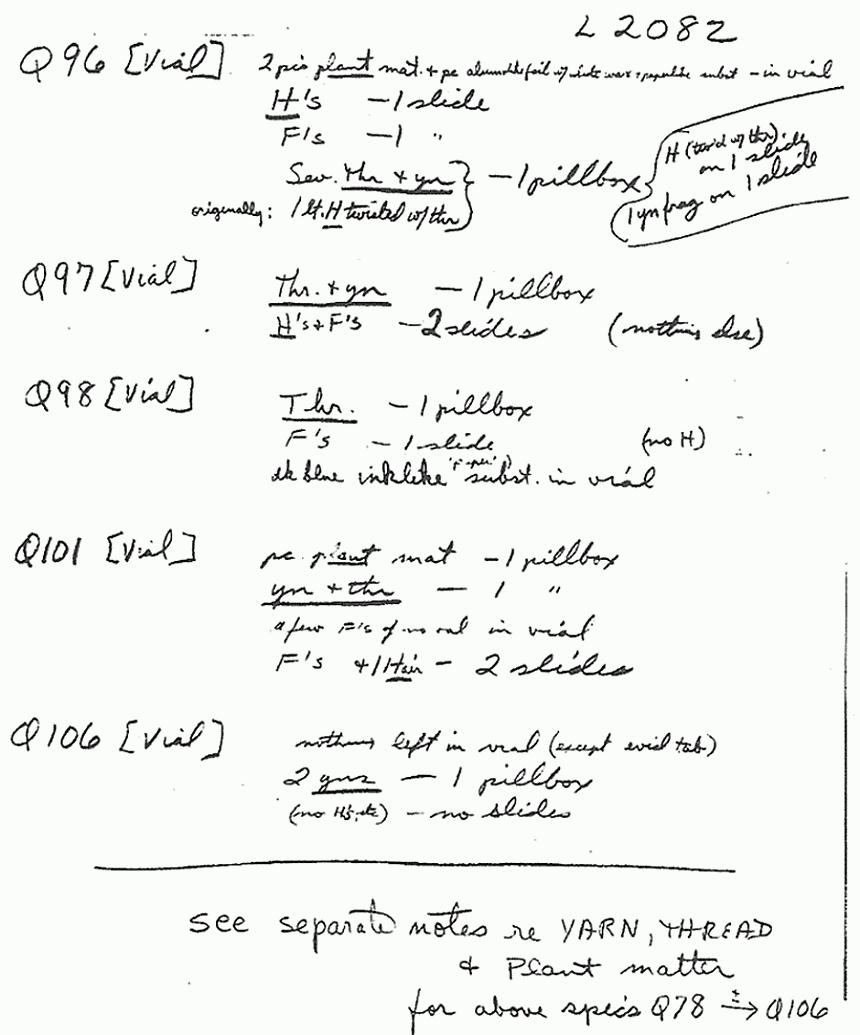 L 2082
Q96 [Vial] 2 pcs plant mat. + pc alum foil w/ wax + paperlike subst - in vial
H's - 1 slide
F's - 1 "
Sev. thr + yn } - 1 pillbox { H (twi'd w/ thr). on 1 slide
originally: 1 lt. H twisted w/ thr } 1 yn frag on 1 slide
Q97 [Vial] Thr. + yn - 1 pillbox
H's + F's - 2 slides (nothing else)
Q98 [Vial] Thr. - 1 pillbox
F's - 1 slide (no H)
dk blue inklike subst. in vial
Q101 [Vial] pc plant mat - 1 pillbox
yn + thr - 1 "
a few F's of no val in vial
F's + 1 Hair - 2 slides
Q106 [Vial] nothing left in vial (except evid tab)
2 yns - 1 pillbox
(no H's, etc) - no slides
see separate notes re YARN, THREAD
& Plant matter
for above specs Q78 → Q106